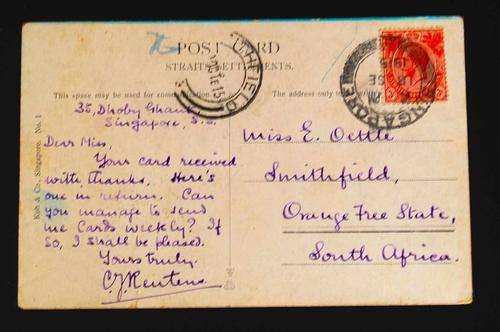 POST CARD
STRAITS SETTLEMENTS.
This space may be used for communication
The address only to
35, Dhoby Ghaut
Singapore, S.S.
Dear Miss,
Your card received
with thanks. Here's
one in return. Can
you manage to send
me Cards weekly? If
so, I shall be pleased.
Yours truly.
Miss E. Oettle
Smithfield,
Orange Free State,
South Africa.
Koh & Co., Singapore. No. 1
SINGAPORE
1915